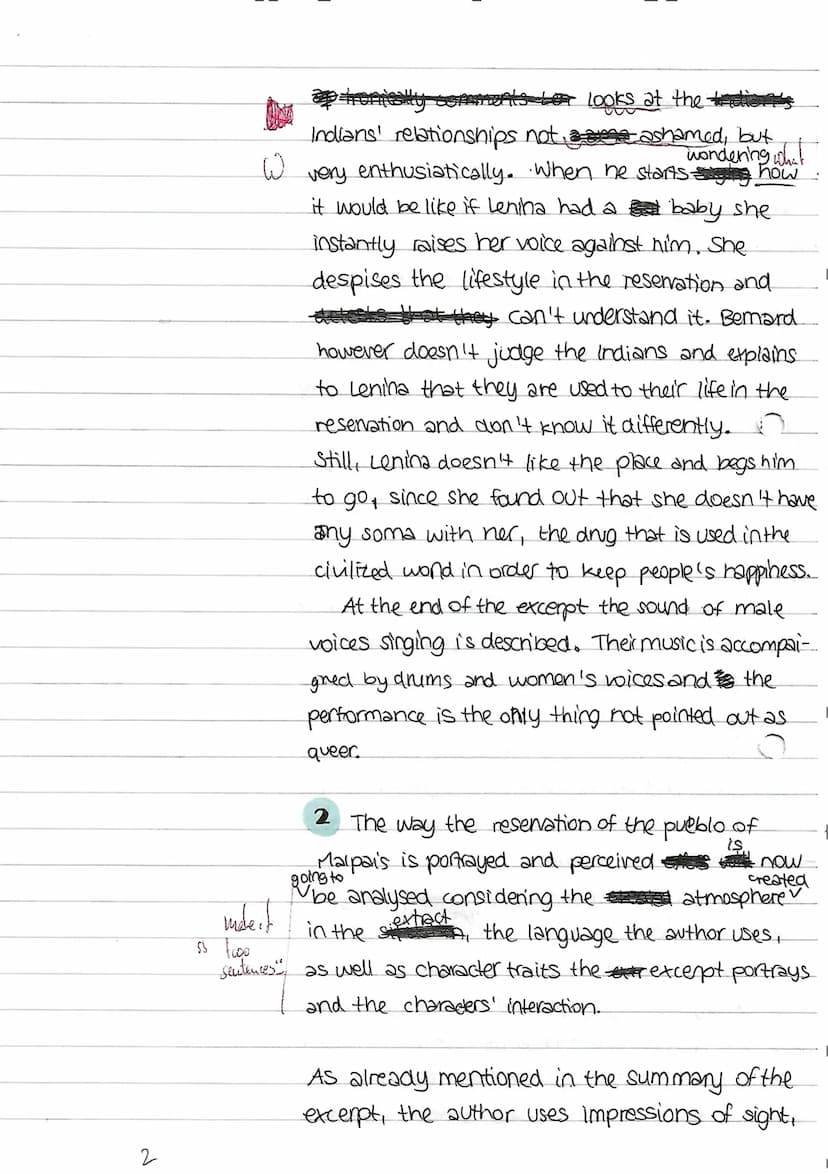 looks at the
Indians' relationships not ashamed, but
wondering what
W very enthusiatically. When he starts how
it would be like if Lenina had a baby she
instantly raises her voice against him. She
despises the lifestyle in the reservation and
can't understand it. Bernard
however doesn't judge the Indians and explains
to Lenina that they are used to their life in the
reservation and don't know it differently.
Still, Lenina doesn't like the place and begs him
to go, since she found out that she doesn't have
any soma with her, the drug that is used in the
civilized world in order to keep people's happiness.
At the end of the excerpt the sound of male
voices singing is described. Their music is accompai-
gned by drums and women's voices and the
performance is the only thing not pointed out as
queer.
2 The way the reservation of the pueblo of
is
Malpais is portrayed and perceived now
going to created
be analysed considering the atmosphere
extract
in the , the language the author uses,
make it
ss two
sentences"
as well as character traits the excerpt portrays
and the characters' interaction.
As already mentioned in the summary of the
excerpt, the author uses impressions of sight,
2